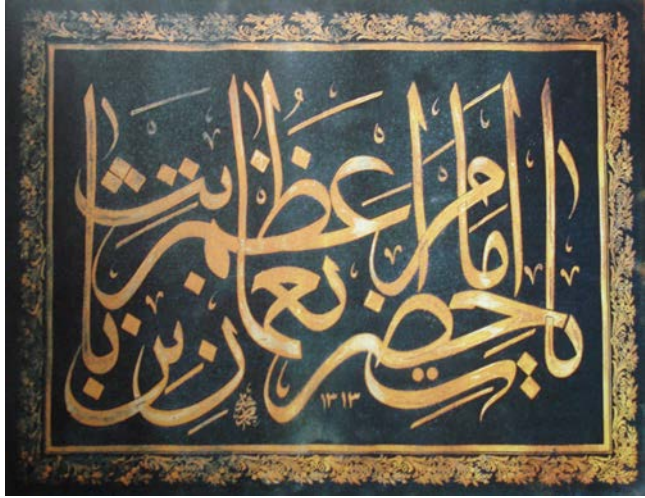 يا حضرت امام اعظم نعمان بن ثابت
١٣١٣